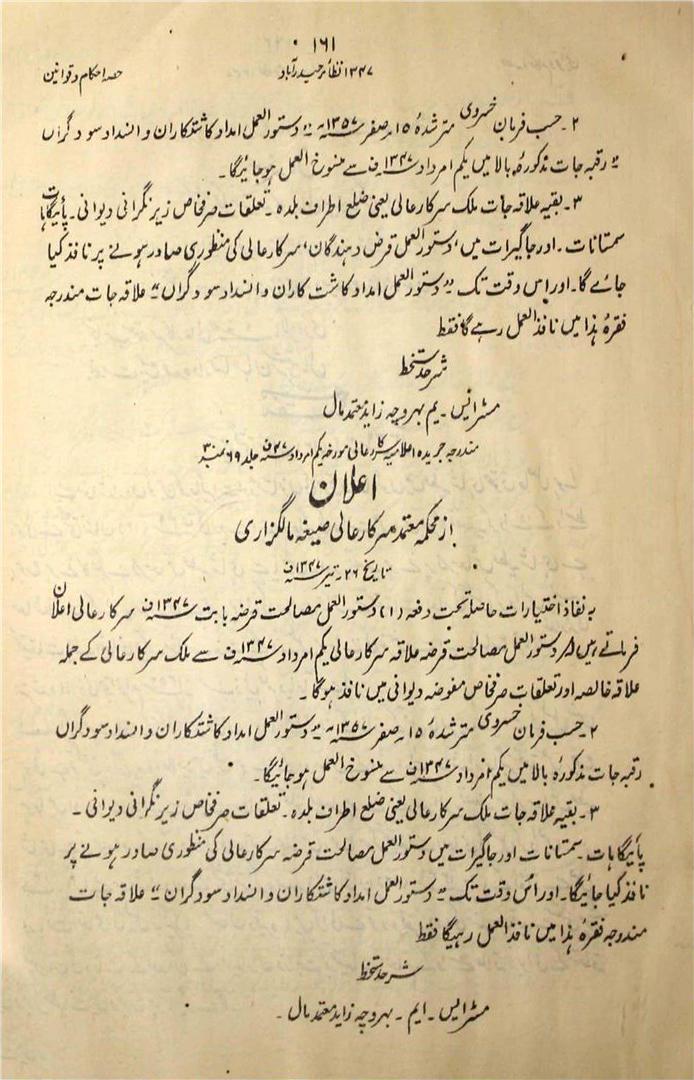 ۱۶۱
حصہ احکام و قوانین
۱۳۴۷ نظائر حیدرآباد
۲۔ حسب فرمان خسروی مترشدۂ ۱۵؍ صفر ۱۳۵۷ھ "دستور العمل امداد کاشتکاران و انسداد سود گراں
" رقبہ جات مذکورۂ بالا میں یکم امرداد ۱۳۴۷ ف سے منسوخ العمل ہوجائیگا۔
۳۔ بقیہ علاقہ جات ملک سرکار عالی یعنی ضلع اطراف بلدہ۔ تعلقات صرفخاص زیر نگرانی دیوانی۔ پائیگاہات
سمستانات۔ اور جاگیرات میں، دستور العمل قرض دہندگان، سرکار عالی کی منظوری صادر ہونے پر نافذ کیا
جائے گا۔ اور اس وقت تک "دستور العمل امداد کاشت کاران و انسداد سود گراں" علاقہ جات مندرجہ
فقرۂ ہذا میں نافذ العمل رہے گا فقط
شرحدستخط
مسٹر ایس۔ یم بہروچہ زاید معتمد مال
مندرجہ جریدہ اعلامیہ سرکار عالی مورخہ یکم امرداد ۴۷ ف جلد ۶۹ نمبر ۳
اعلان
از محکمہ معتمد سرکار عالی صیغہ مالگزاری
تاریخ ۲۶۔ تیر ۱۳۴۷ ف
بہ نفاذ اختیارات حاصلہ تحت دفعہ (۱) دستور العمل مصالحت قرضہ بابت ۱۳۴۷ ف سرکار عالی اعلان
فرماتے ہیں دستور العمل مصالحت قرضہ علاقہ سرکار عالی یکم امرداد ۱۳۴۷ ف سے ملک سرکار عالی کے جملہ
علاقہ خالصہ اور تعلقات صرفخاص مفوضہ دیوانی میں نافذ ہوگا۔
۲۔ حسب فرمان خسروی مترشدۂ ۱۵؍ صفر ۱۳۵۷ھ "دستور العمل امداد کاشتکاران و انسداد سود گراں
رقبہ جات مذکورۂ بالا میں یکم امرداد ۱۳۴۷ ف سے منسوخ العمل ہوجائیگا۔
۳۔ بقیہ علاقہ جات ملک سرکار عالی یعنی ضلع اطراف بلدہ۔ تعلقات صرفخاص زیر نگرانی دیوانی۔
پائیگاہات۔ سمستانات اور جاگیرات میں دستور العمل مصالحت قرضہ سرکار عالی کی منظوری صادر ہونے پر
نافذ کیا جائیگا۔ اور اس وقت تک "دستور العمل امداد کاشتکاران و انسداد سود گراں" علاقہ جات
مندوجہ فقرۂ ہذا میں نافذ العمل رہیگا فقط
شرحدستخط
مسٹر ایس۔ ایم۔ بہروچہ زاید معتمد مال۔